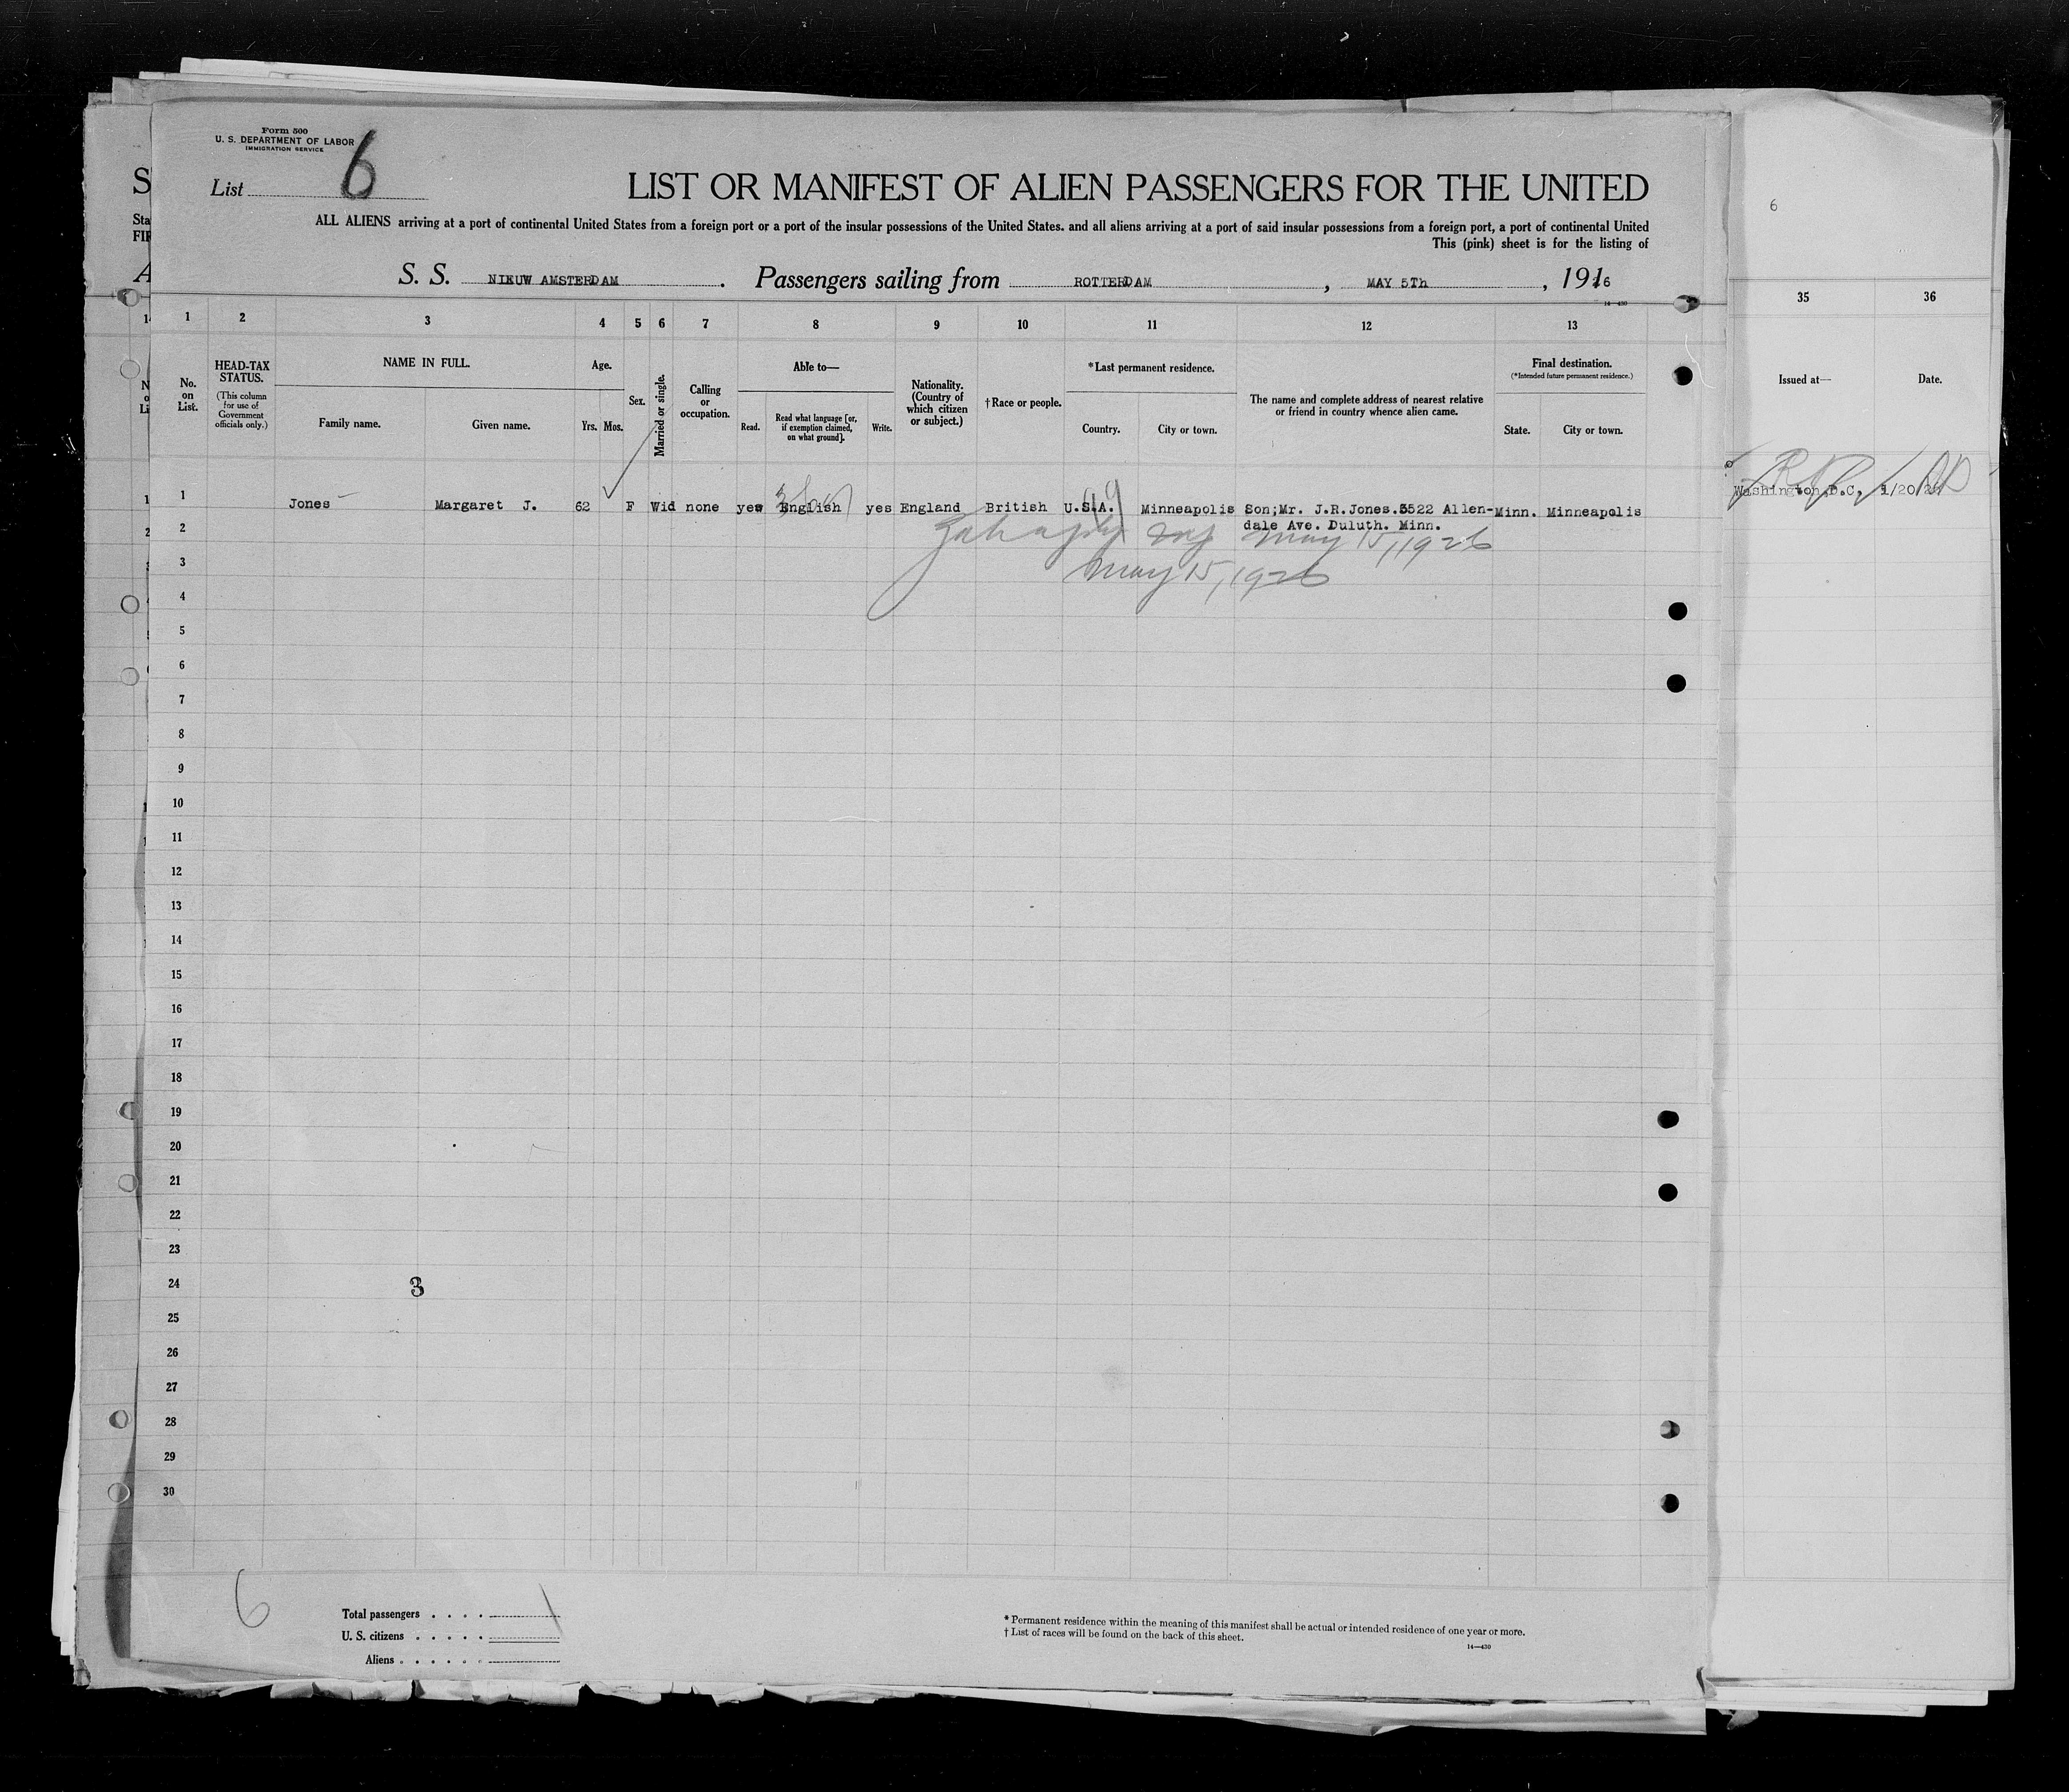 Form 500
U. S. DEPARTMENT OF LABOR
IMMIGRATION SERVICE
List 6
LIST OR MANIFEST OF ALIEN PASSENGERS FOR THE UNITED
ALL ALIENS arriving at a port of continental United States from a foreign port or a port of the insular possessions of the United States, and all aliens arriving at a port of said insular possessions from a foreign port, a port of continental United
This (pink) sheet is for the listing of
S. S. NIEUW AMSTERDAM . Passengers sailing from ROTTERDAM , MAY 5Th , 1926
14—430
1 2 3 4 5 6 7 8 9 10 11 12 13
No. on List.
HEAD-TAX STATUS.
(This column for use of Government officials only.)
NAME IN FULL.
Family name. Given name.
Age.
Yrs. Mos.
Sex.
Married or single.
Calling or occupation.
Able to—
Read. Read what language [or, if exemption claimed, on what ground]. Write.
Nationality. (Country of which citizen or subject.)
†Race or people.
*Last permanent residence.
Country. City or town.
The name and complete address of nearest relative or friend in country whence alien came.
Final destination.
(*Intended future permanent residence.)
State. City or town.
1 Jones Margaret J. 62 F Wid none yes English yes England British U.S.A. Minneapolis Son;Mr. J.R.Jones.3522 Allen- Minn. Minneapolis
dale Ave. Duluth. Minn.
2
May 15, 1926
3
May 15, 1926
4
5
6
7
8
9
10
11
12
13
14
15
16
17
18
19
20
21
22
23
24
3
25
26
27
28
29
30
6
Total passengers . . . . 1
U. S. citizens . . . . .
Aliens . . . . . .
* Permanent residence within the meaning of this manifest shall be actual or intended residence of one year or more.
† List of races will be found on the back of this sheet.
14—430
6
35 36
Issued at— Date.
Washington,D.C,